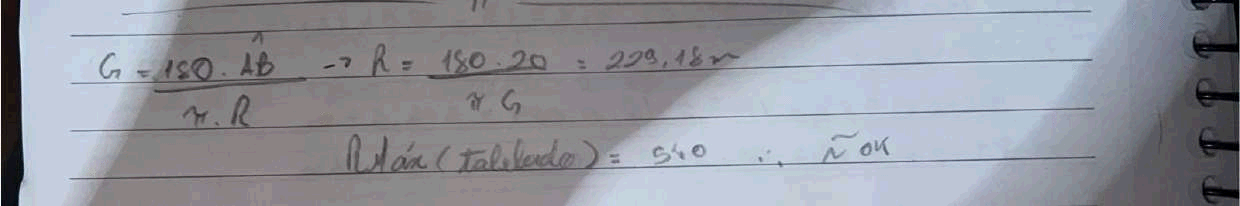 G = 180 . AB̂ / π . R → R = 180 . 20 / π G = 229,18 m
RMáx (tabelado) = 540 ∴ Ñ OK